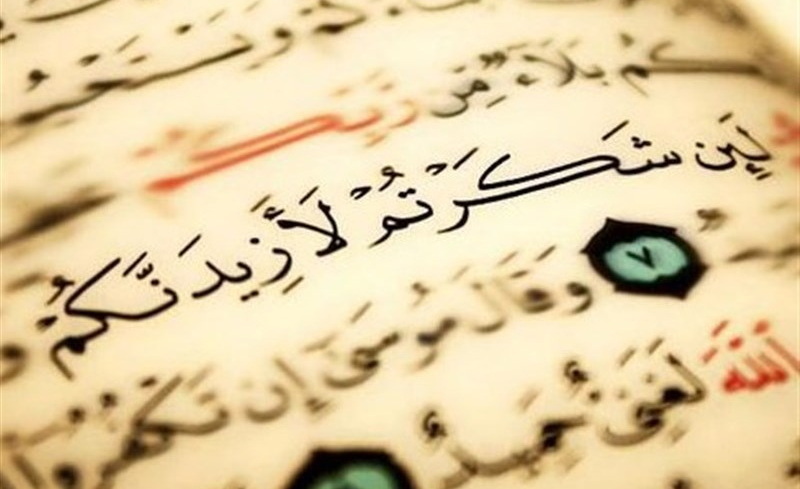 كم بلاء من ربكم
لَئِن شَكَرْتُمْ لَأَزِيدَنَّكُمْ
٧ وَقَالَ مُوسَى إِن تَكْفُرُوا
الله لَغَنِيٌّ حَمِيدٌ